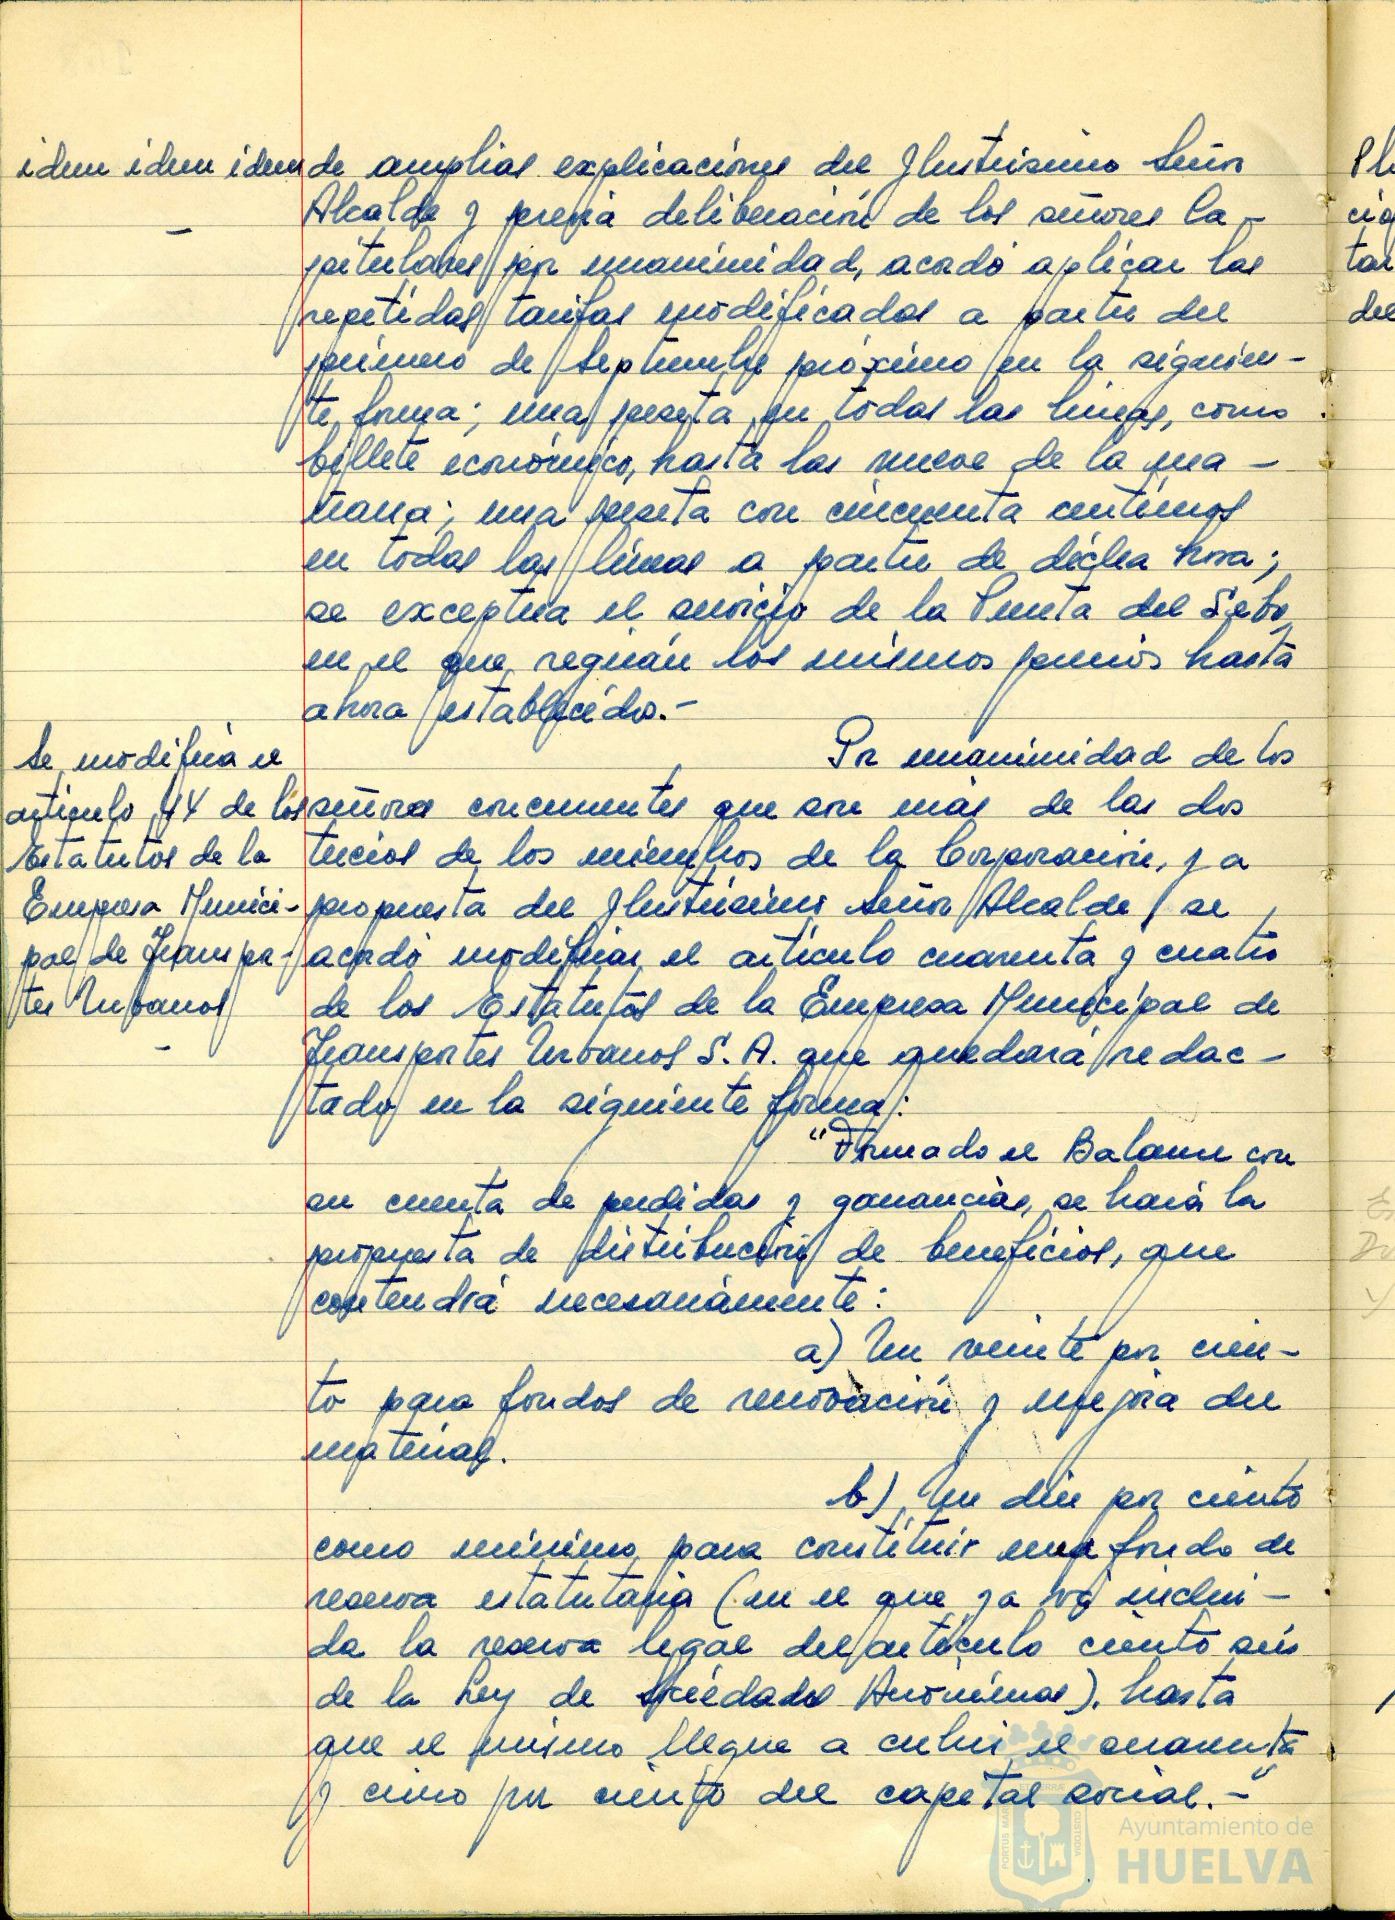 idem idem idem
de amplias explicaciones del Ilustrisimo Señor
Alcalde y previa deliberación de los señores Ca-
pitulares por unanimidad, acordó aplicar las
repetidas tarifas modificadas a partir del
primero de Septiembre próximo en la siguien-
te forma; una peseta en todas las lineas, como
billete económico, hasta las nueve de la ma-
ñana; una peseta con cincuenta centimos
en todas las lineas a partir de dicha hora;
se exceptua el servicio de la Punta del Sebo,
en el que regirán los mismos precios hasta
ahora establecidos.-
Se modifica el
articulo 44 de los
Estatutos de la
Empresa Munici-
pal de Transpor-
tes Urbanos
Por unanimidad de los
señores concurrentes que son más de las dos
tercios de los miembros de la Corporación, y a
propuesta del Ilustrisimo Señor Alcalde, se
acordó modificar el articulo cuarenta y cuatro
de los Estatutos de la Empresa Municipal de
Transportes Urbanos S. A. que quedará redac-
tado en la siguiente forma:
"Formado el Balance con
su cuenta de perdidas y ganancias, se hará la
propuesta de distribución de beneficios, que
contendrá necesariamente:
a) Un veinte por cien-
to para fondos de renovación y mejora del
material.
b) Un diez por ciento
como minimo para constituir un fondo de
reserva estatutaria (en el que ya vá inclui-
da la reserva legal del articulo ciento seis
de la Ley de Sociedades Anónimas), hasta
que el mismo llegue a cubrir el cuarenta
y cinco por ciento del capital social.-"
Ayuntamiento de
HUELVA
PORTUS MARIS
ET TERRAE
CUSTODIA